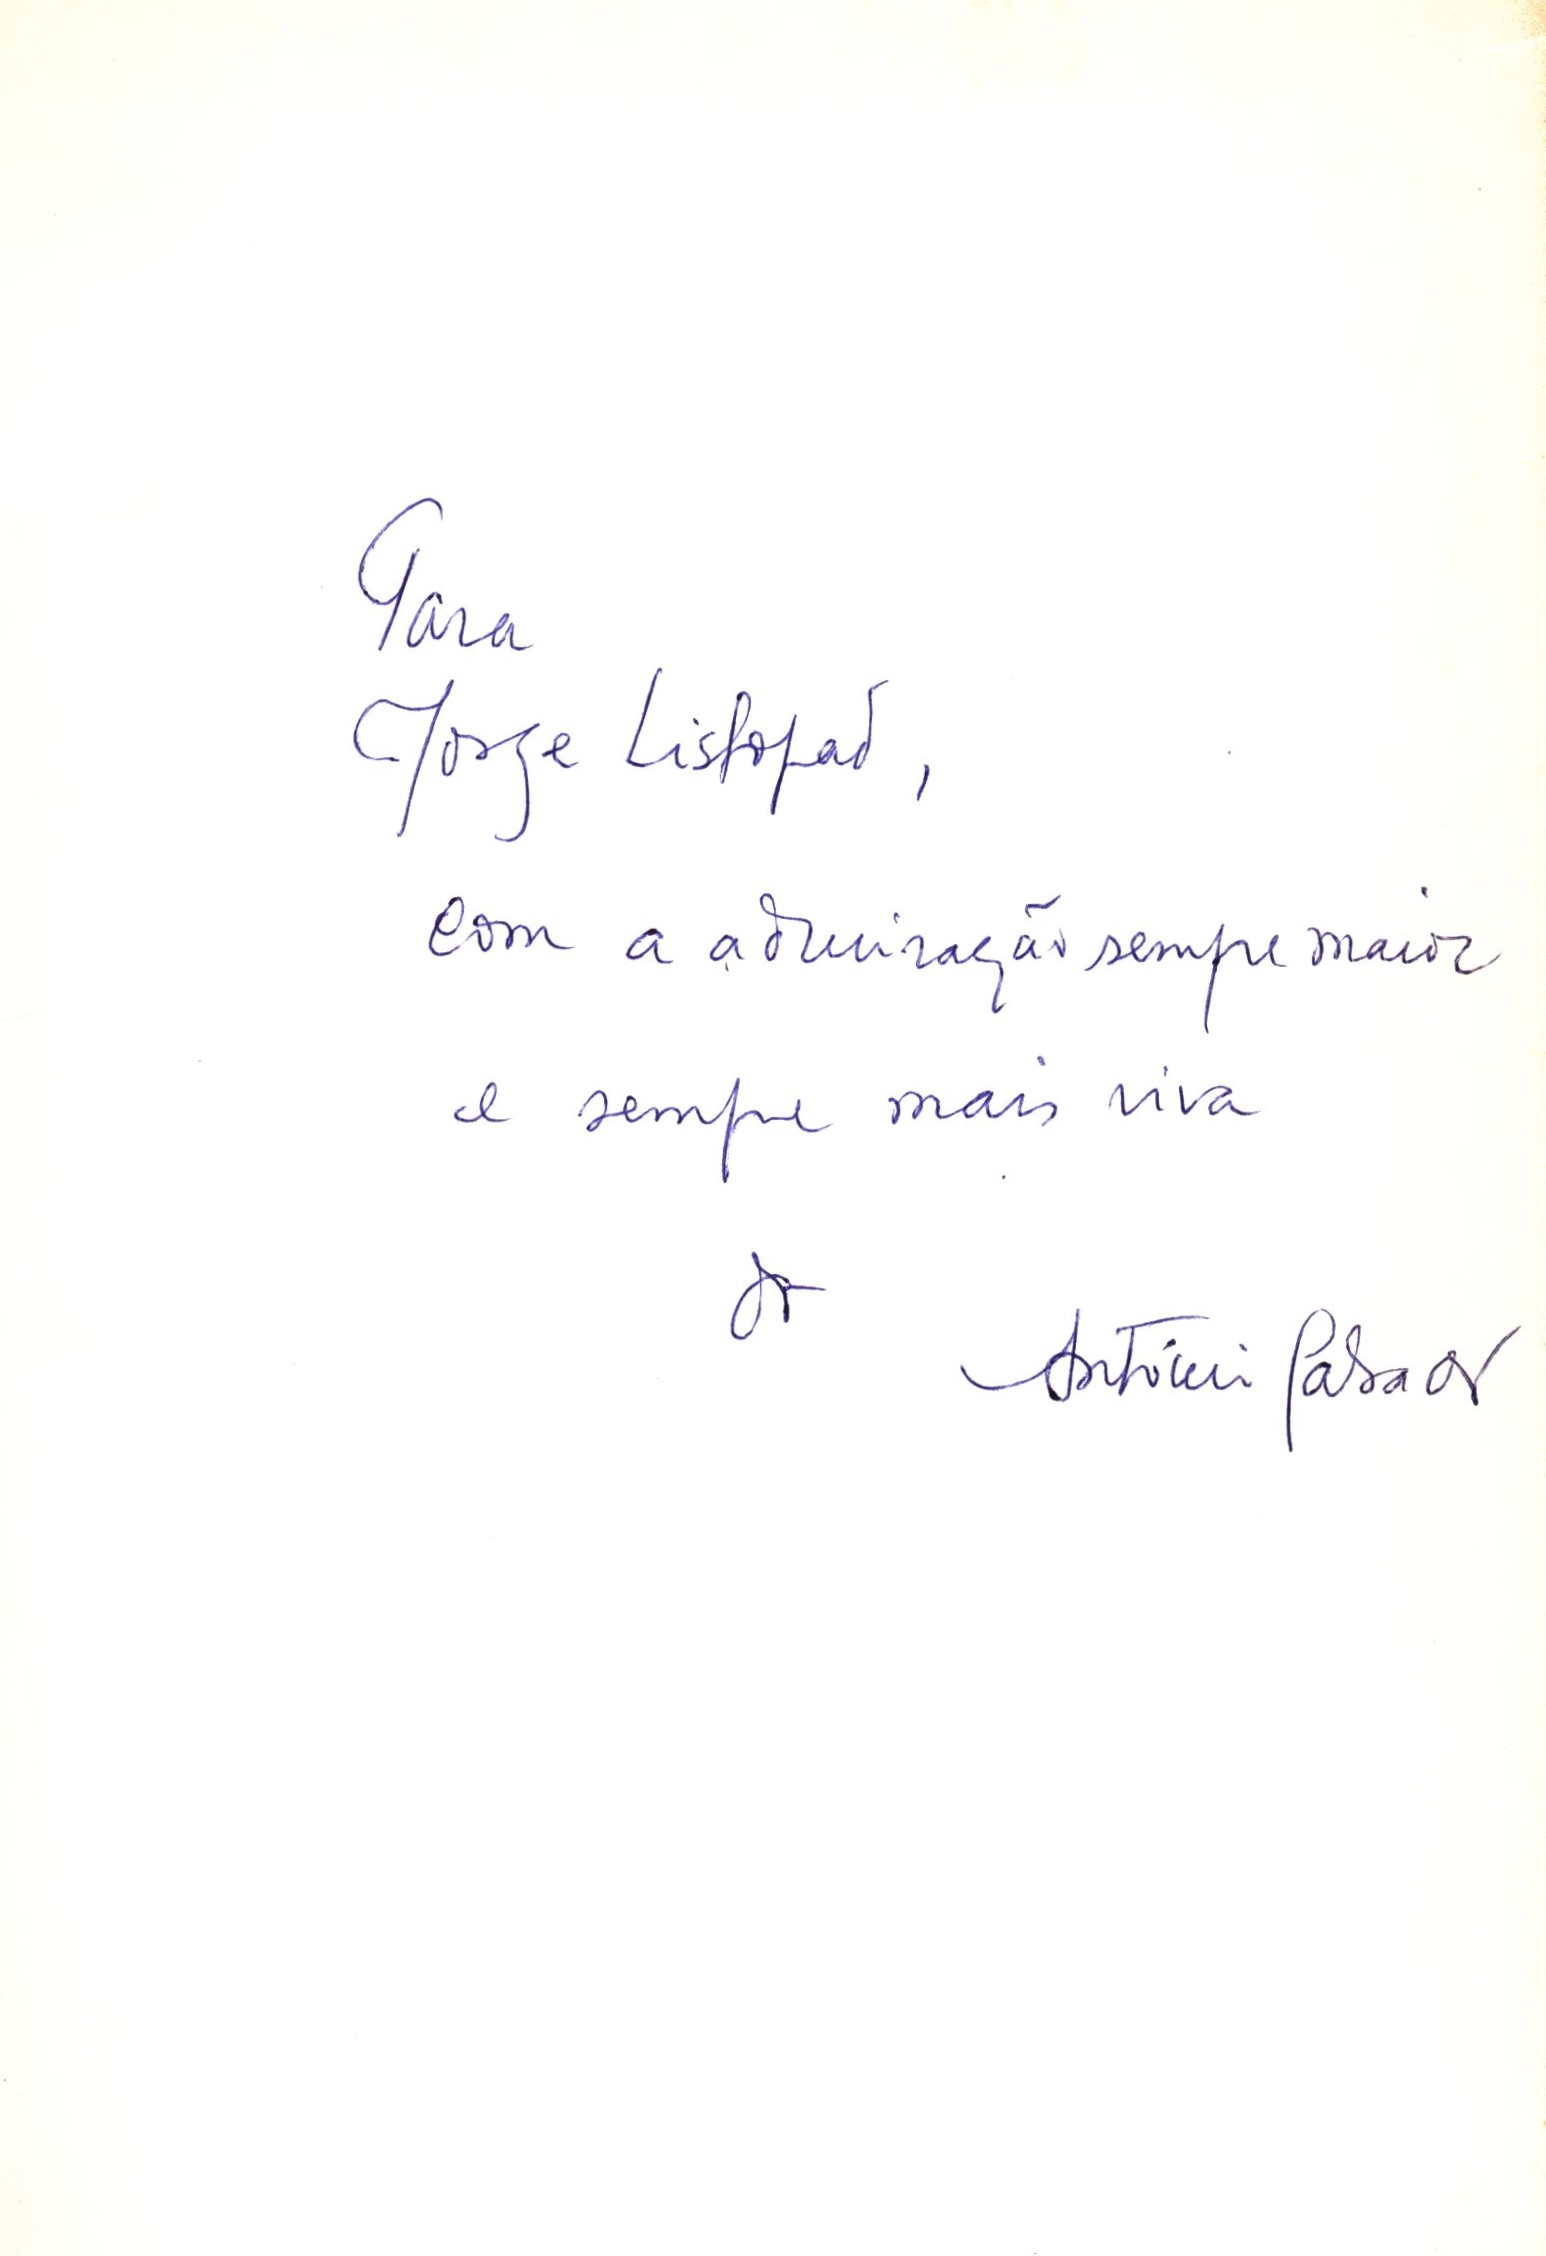 Para
Jorge Listopad,
com a admiração sempre maior
e sempre mais viva
do
António